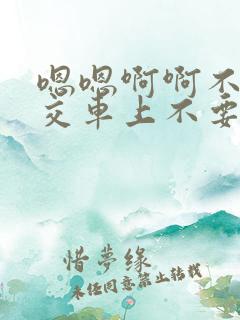 嗯嗯啊啊不
交车上不要
惜梦缘
未经同意禁止转载